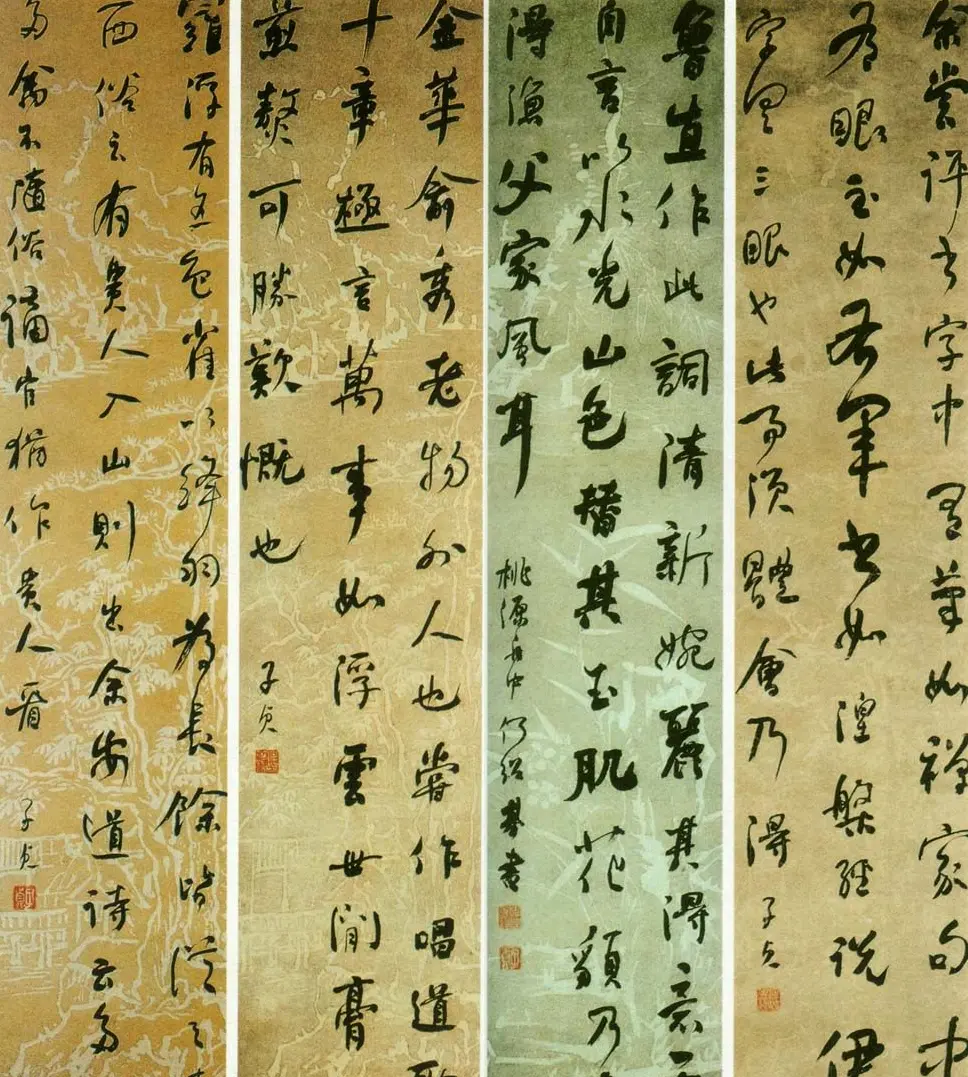 余嘗評書字中有筆如禪家句中
有眼至如右軍書如涅槃經說伊
字具三眼也此事須體會乃得 子貞
魯直作此詞清新婉麗其得意
自言以水光山色替其玉肌花貌乃
得漁父家風耳
桃源舟中 何紹基書
金華俞秀老物外人也嘗作唱道
十章極言萬事如浮雲世間膏
煎熬可勝歎慨也 子貞
羅浮有五色雀以絳羽為長餘皆從之
西俗云有貴人入山則出余安道詩云多
珍禽不隨俗謫官猶作貴人看 子貞